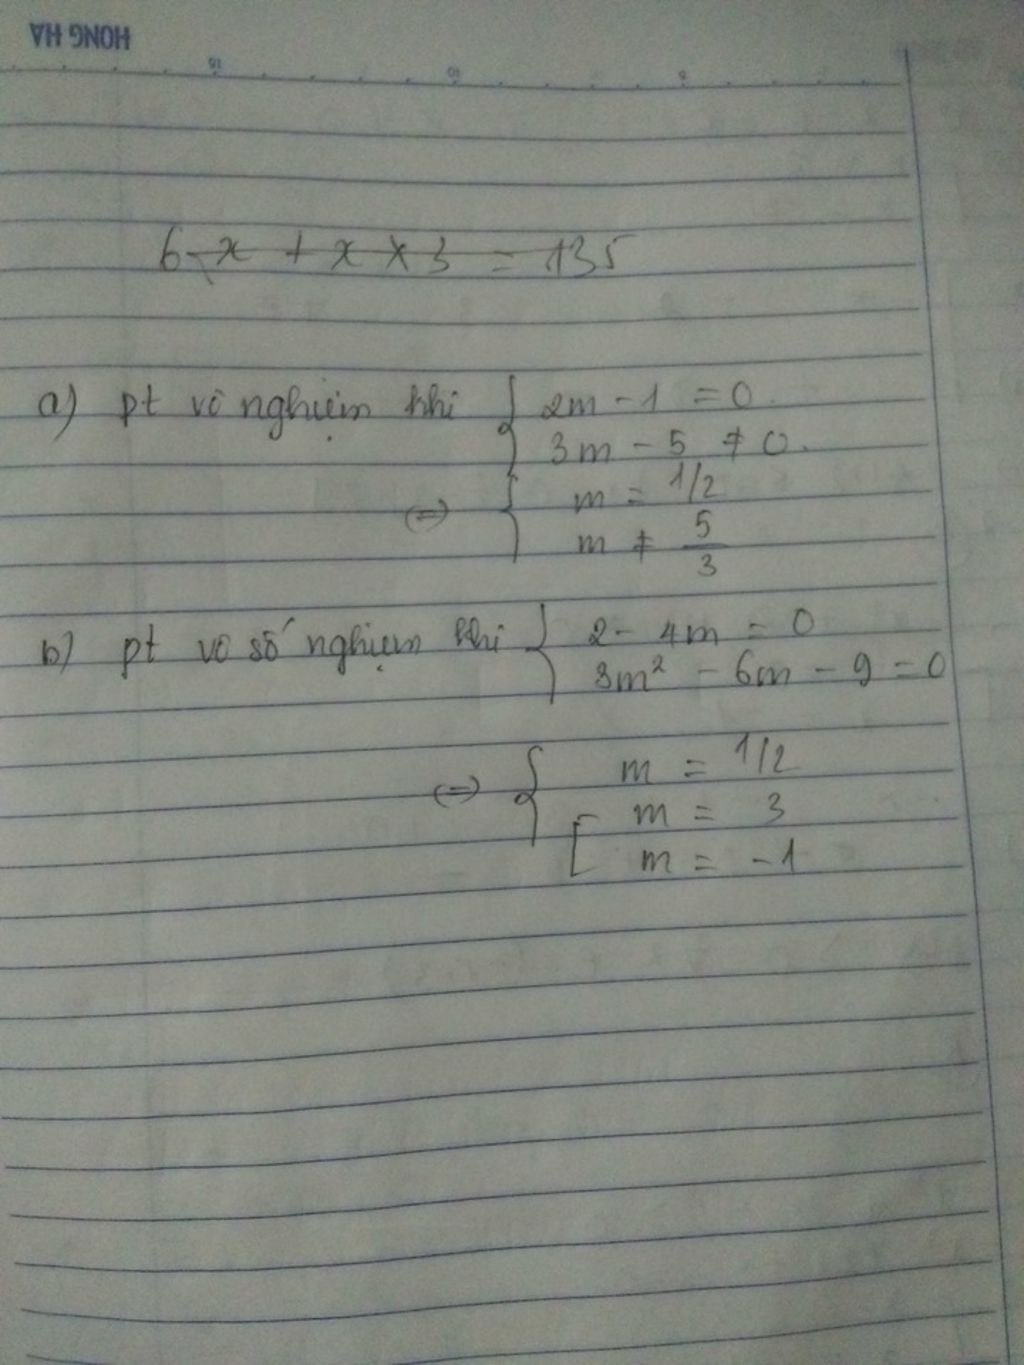 HONG HA
15 10 5
6 x + x × 3 = 135
a) pt vô nghiệm khi { 2m - 1 = 0.
3m - 5 ≠ 0.
(=) { m = 1/2
m ≠ 5/3
b) pt vô số nghiệm khi { 2 - 4m = 0
3m² - 6m - 9 = 0
(=) { m = 1/2
[ m = 3
m = -1